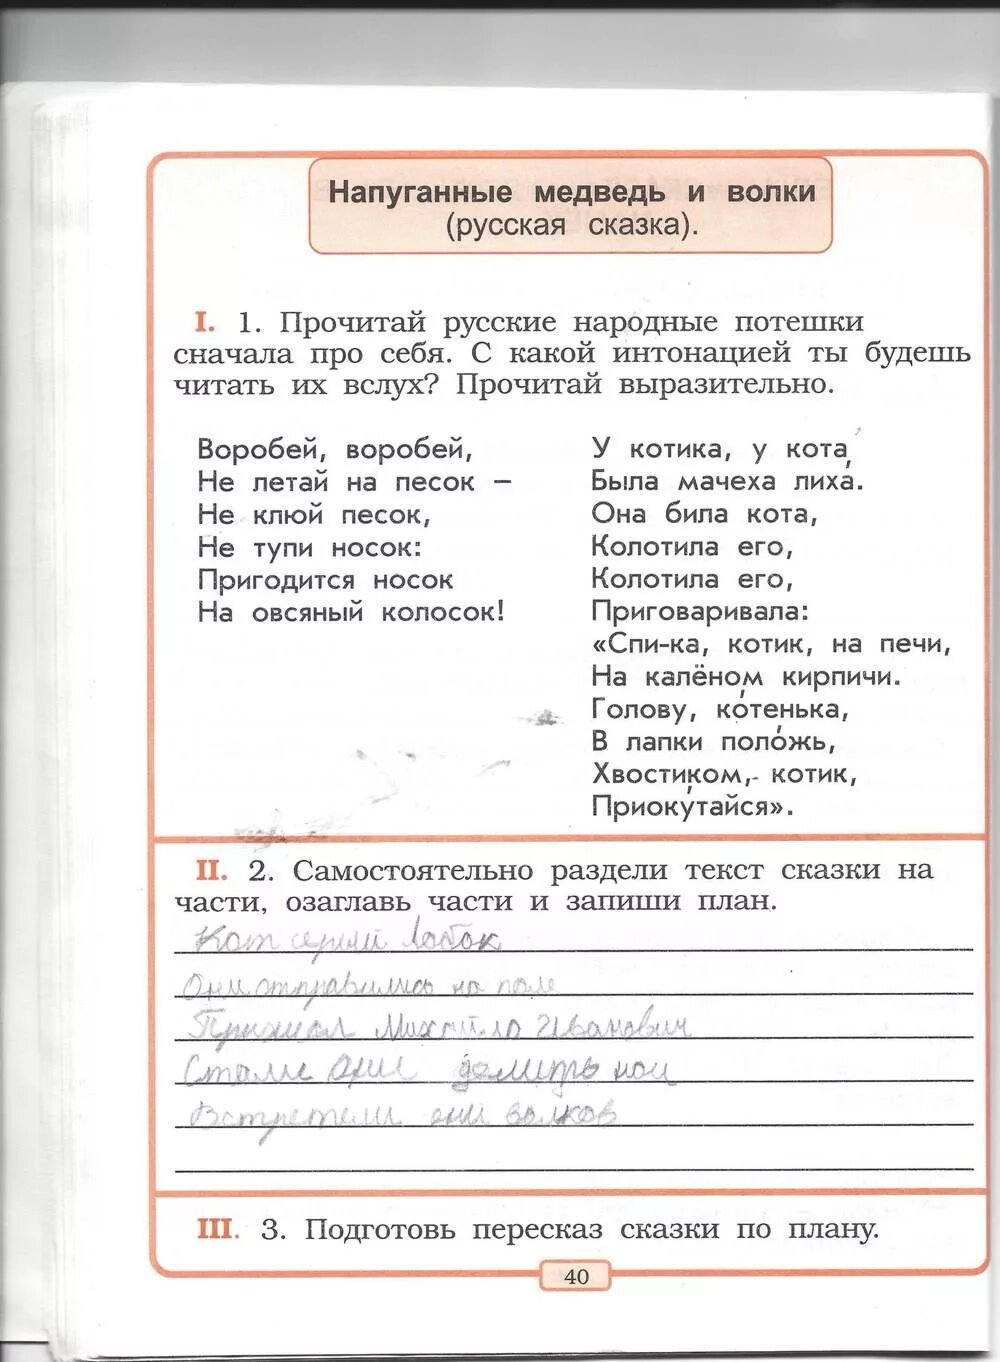 Напуганные медведь и волки
(русская сказка).
I. 1. Прочитай русские народные потешки
сначала про себя. С какой интонацией ты будешь
читать их вслух? Прочитай выразительно.
Воробей, воробей,
Не летай на песок –
Не клюй песок,
Не тупи носок:
Пригодится носок
На овсяный колосок!
У котика, у кота
Была мачеха лиха́.
Она била кота,
Колотила его,
Колотила его,
Приговаривала:
«Спи-ка, котик, на печи,
На калёном кирпичи.
Голову, ко́тенька,
В лапки поло́жь,
Хвостиком, котик,
Приоку́тайся».
II. 2. Самостоятельно раздели текст сказки на
части, озаглавь части и запиши план.
Кот серый лобок
Они отправились на поле
Пришол Михайло Иванович
Стали они
Встретели они волков
III. 3. Подготовь пересказ сказки по плану.
40